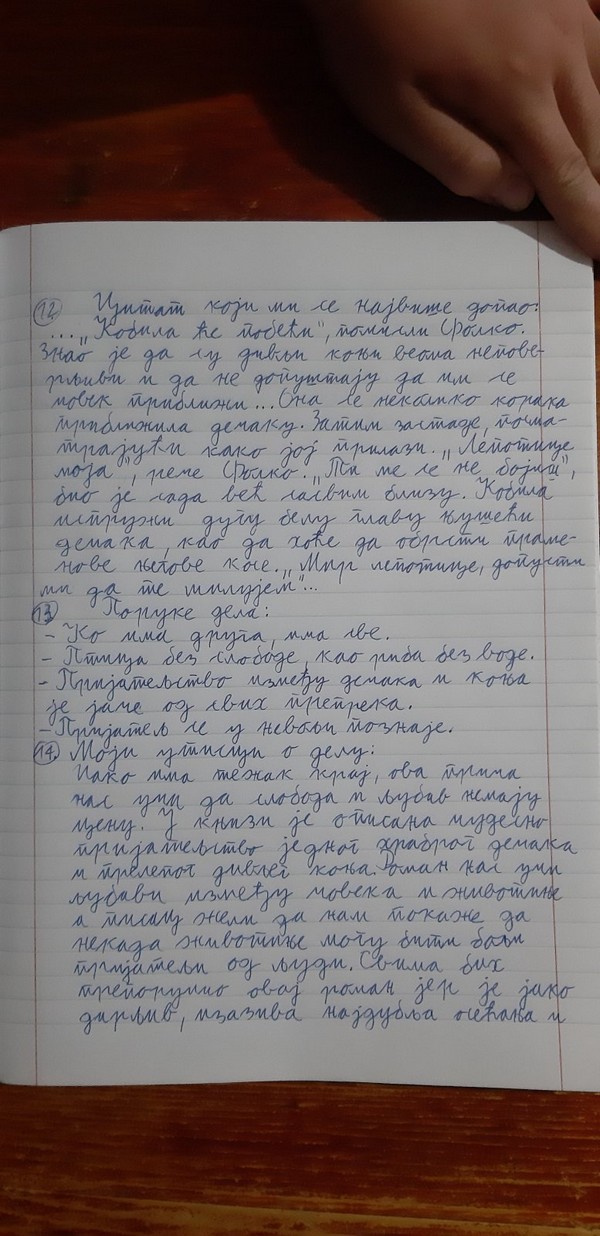 12. Цитат који ми се највише допао:
... „Кобила ће побећи", помисли Фолко.
Знао је да су дивљи коњи веома непове-
рљиви и да не допуштају да им се
човек приближи... Она се неколико корака
приближила дечаку. Затим застаде, посма-
трајући како јој прилази. „Лепотице
моја", рече Фолко. „Ти ме се не бојиш",
био је сада већ сасвим близу. Кобила
испружи дугу белу главу њушећи
дечака, као да хоће да обрсти праме-
нове његове косе. „Мир лепотице, допусти
ми да те милујем"...
13. Поруке дела:
- Ко има друга, има све.
- Птица без слободе, као риба без воде.
- Пријатељство између дечака и коња
је јаче од свих препрека.
- Пријатељ се у невољи познаје.
14. Моји утисци о делу:
Иако има тежак крај, ова прича
нас учи да слобода и љубав немају
цену. У књизи је описана чудесно
пријатељство једног храброг дечака
и прелепог дивљег коња. Роман нас учи
љубави између човека и животиње
а писац жели да нам покаже да
некада животиње могу бити бољи
пријатељи од људи. Свима бих
препоручио овај роман јер је јако
дирљив, изазива најдубља осећања и